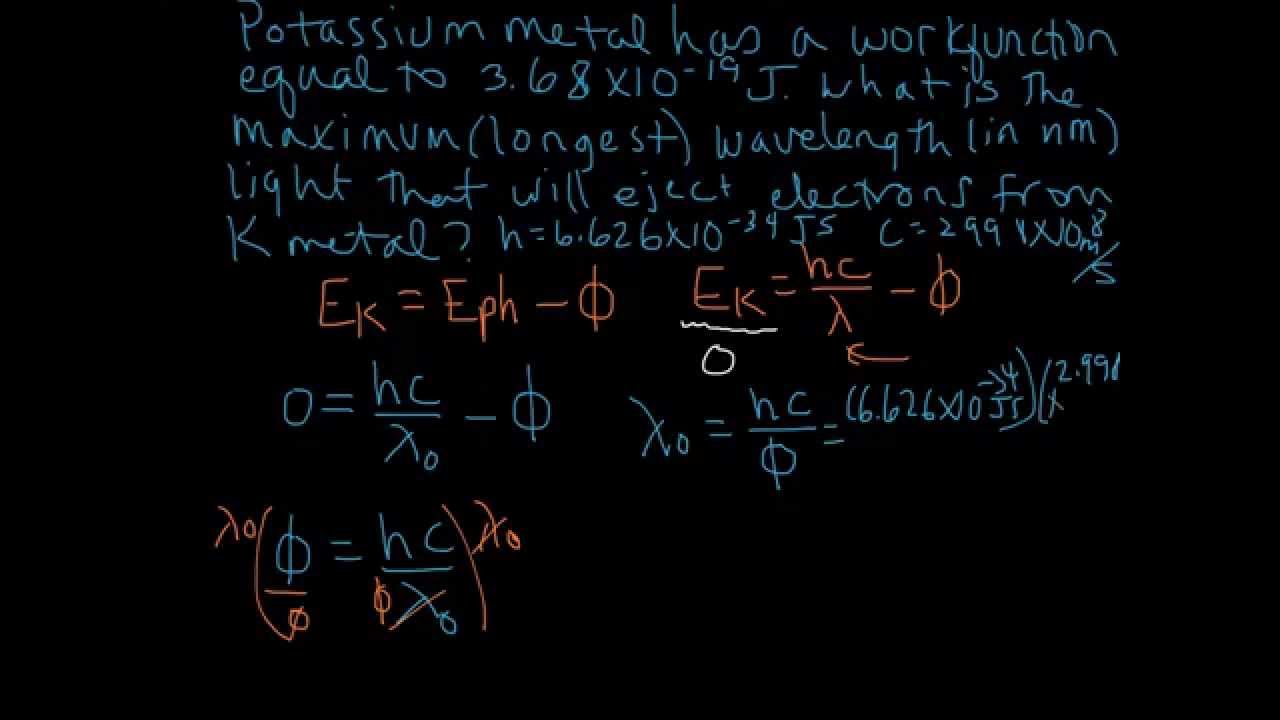 Potassium metal has a workfunction
equal to 3.68X10⁻¹⁹ J. What is the
maximum (longest) wavelength (in nm)
light that will eject electrons from
K metal? h=6.626X10⁻³⁴ JS C=2.998X10⁸ m/s
E_K = Eph − ϕ E_K = hc/λ − ϕ
0
0 = hc/λ₀ − ϕ λ₀ = hc/ϕ = (6.626X10⁻³⁴ JS)(2.998 X
λ₀ (ϕ/ϕ = hc/ϕλ₀) λ₀